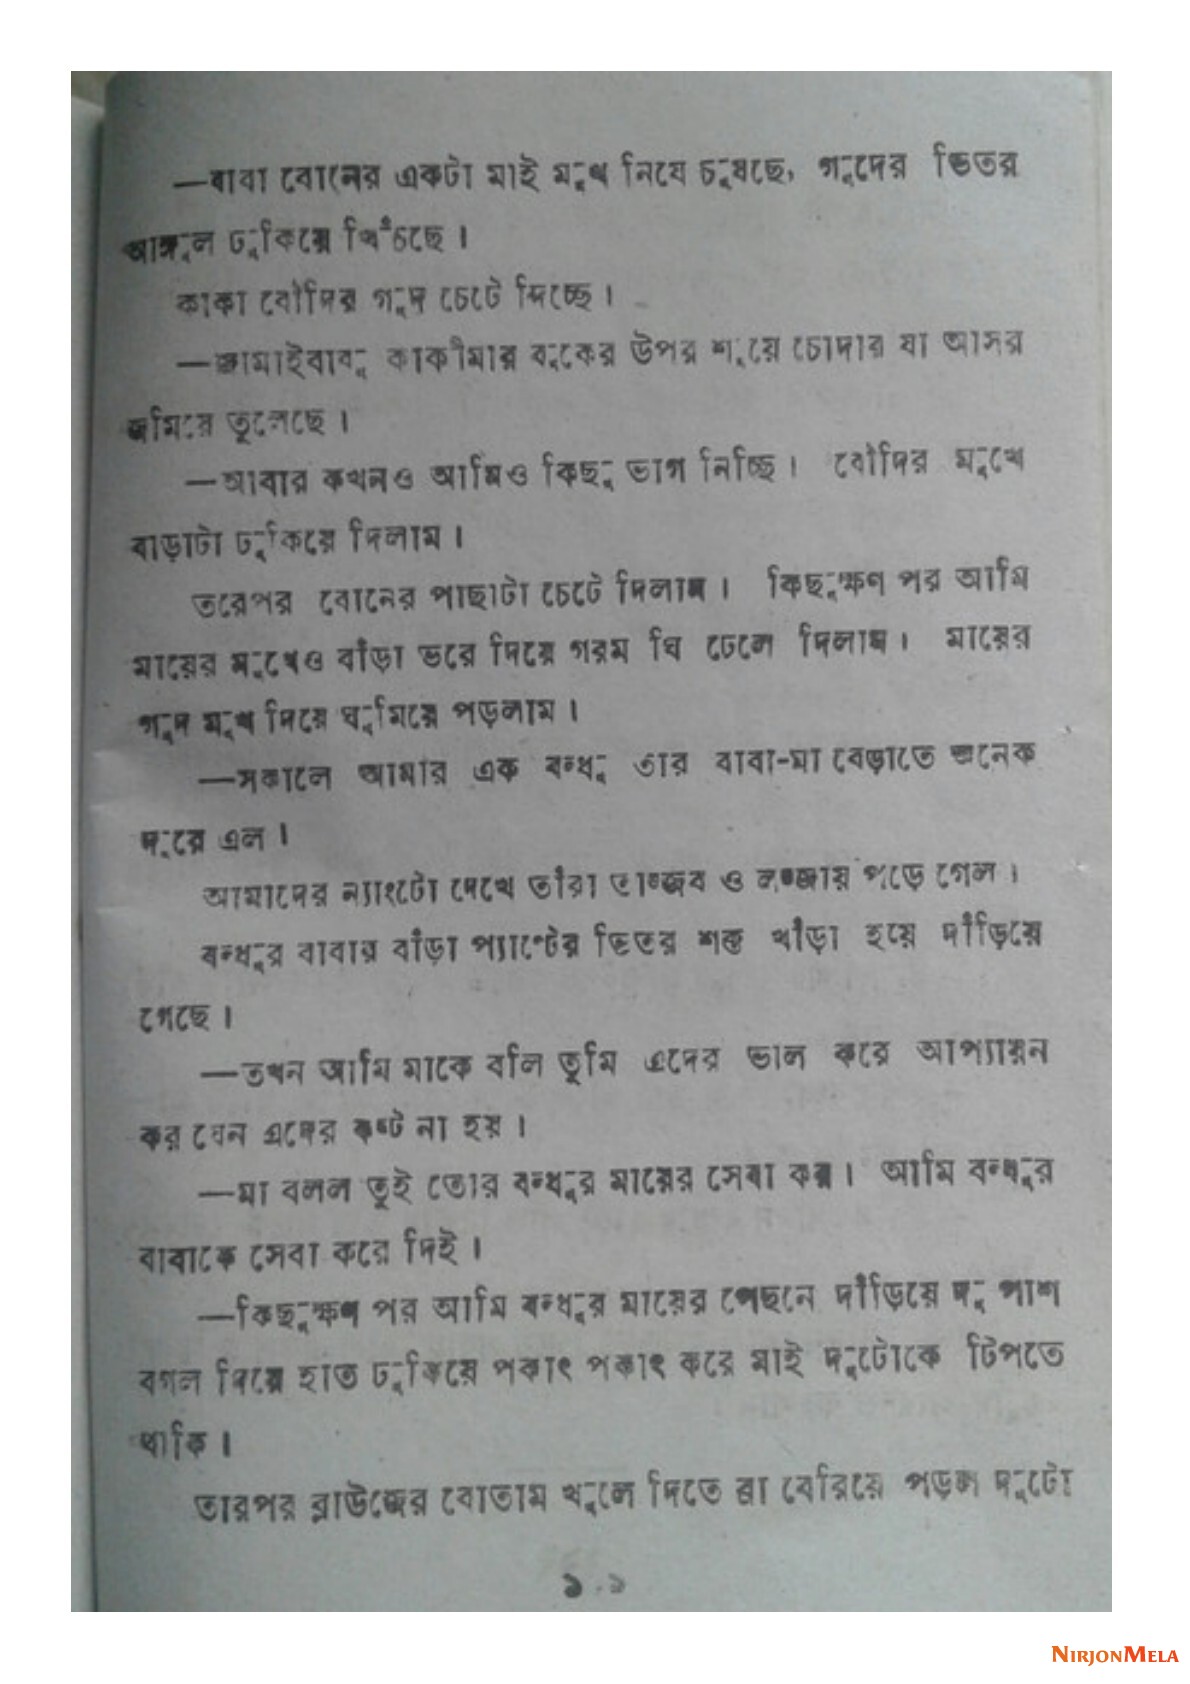 —বাবা বোনের একটা মাই মুখে নিয়ে চুষছে, গুদের ভিতর
আঙ্গুল ঢুকিয়ে খিঁচছে।
কাকা বৌদির গুদ চেটে দিচ্ছে।
—জামাইবাবু কাকীমার বুকের উপর শুয়ে চোদার যা আসর
জমিয়ে তুলেছে।
—আবার কখনও আমিও কিছু ভাগ নিচ্ছি। বৌদির মুখে
বাড়াটা ঢুকিয়ে দিলাম।
তরেপর বোনের পাছাটা চেটে দিলাম। কিছুক্ষণ পর আমি
মায়ের মুখেও বাঁড়া ভরে দিয়ে গরম ঘি ঢেলে দিলাম। মায়ের
গুদে মুখ দিয়ে ঘুমিয়ে পড়লাম।
—সকালে আমার এক বন্ধু তার বাবা-মা বেড়াতে অনেক
দূরে এল।
আমাদের ন্যাংটো দেখে তাঁরা তাজ্জব ও লজ্জায় পড়ে গেল।
বন্ধুর বাবার বাঁড়া প্যান্টের ভিতর শক্ত খাঁড়া হয়ে দাঁড়িয়ে
গেছে।
—তখন আমি মাকে বলি তুমি এদের ভাল করে আপ্যায়ন
কর যেন এদের কষ্ট না হয়।
—মা বলল তুই তোর বন্ধুর মায়ের সেবা কর। আমি বন্ধুর
বাবাকে সেবা করে দিই।
—কিছুক্ষণ পর আমি বন্ধুর মায়ের পেছনে দাঁড়িয়ে দু পাশ
বগল দিয়ে হাত ঢুকিয়ে পকাৎ পকাৎ করে মাই দুটোকে টিপতে
থাকি।
তারপর ব্লাউজের বোতাম খুলে দিতে ব্রা বেরিয়ে পড়ল দুটো
NIRJONMELA